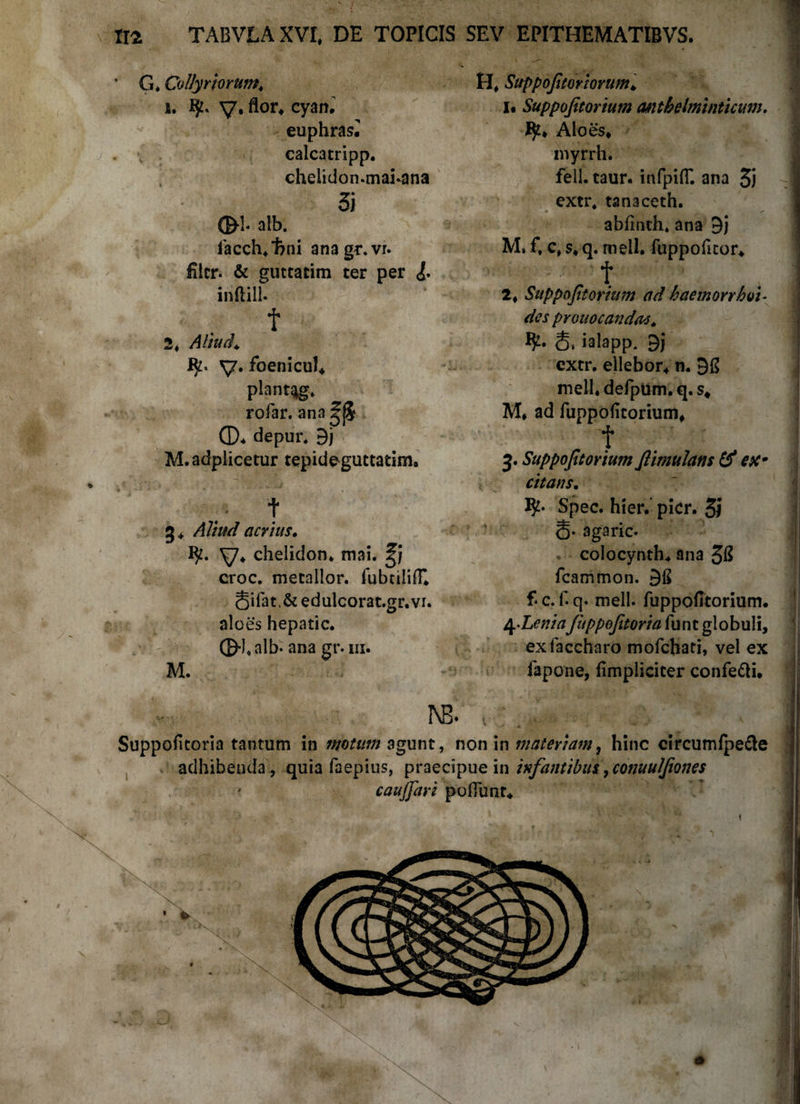 112 TABVLA XVI. DE TOPICIS SEV EPITHEMATIBVS.
G. Collyriorum.
1. ℞. 🜄. flor. cyan.
euphras.
calcatripp.
chelidon.mai.ana
ʒj
alb.
ſacch. ♄ni ana gr. vi.
filtr. & guttatim ter per
inſtill.
†
2. Aliud.
℞. 🜄. foenicul.
plantag.
roſar. ana ℥ß
🜕. depur. ℈j
M. adplicetur tepide guttatim.
†
3. Aliud acrius.
℞. 🜄. chelidon. mai. ℥j
croc. metallor. ſubtiliſſ.
ſat. & edulcorat. gr. vi.
aloës hepatic.
alb. ana gr. III.
M.
H. Suppoſitoriorum.
1. Suppoſitorium anthelminticum.
℞. Aloës.
myrrh.
fell. taur. inſpiſſ. ana ʒj
extr. tanaceth.
abſinth. ana ℈j
M. f. c. s. q. mell. ſuppoſitor.
†
2. Suppoſitorium ad haemorrhoi-
des prouocandas.
℞. ialapp. ℈j
extr. ellebor. n. ℈ß
mell. deſpum. q. s.
M. ad ſuppoſitorium.
†
3. Suppoſitorium ſtimulans & ex-
citans.
℞. Spec. hier. picr. ʒj
agaric.
colocynth. ana ʒß
ſcammon. ℈ß
f. c. ſ. q. mell. ſuppoſitorium.
4. Lenia ſuppoſitoria ſunt globuli,
ex ſaccharo moſchati, vel ex
ſapone, ſimpliciter confecti.
NB.
Suppoſitoria tantum in motum agunt, non in materiam, hinc circumſpecte
adhibenda, quia ſaepius, praecipue in infantibus, conuulſiones
cauſſari poſſunt.